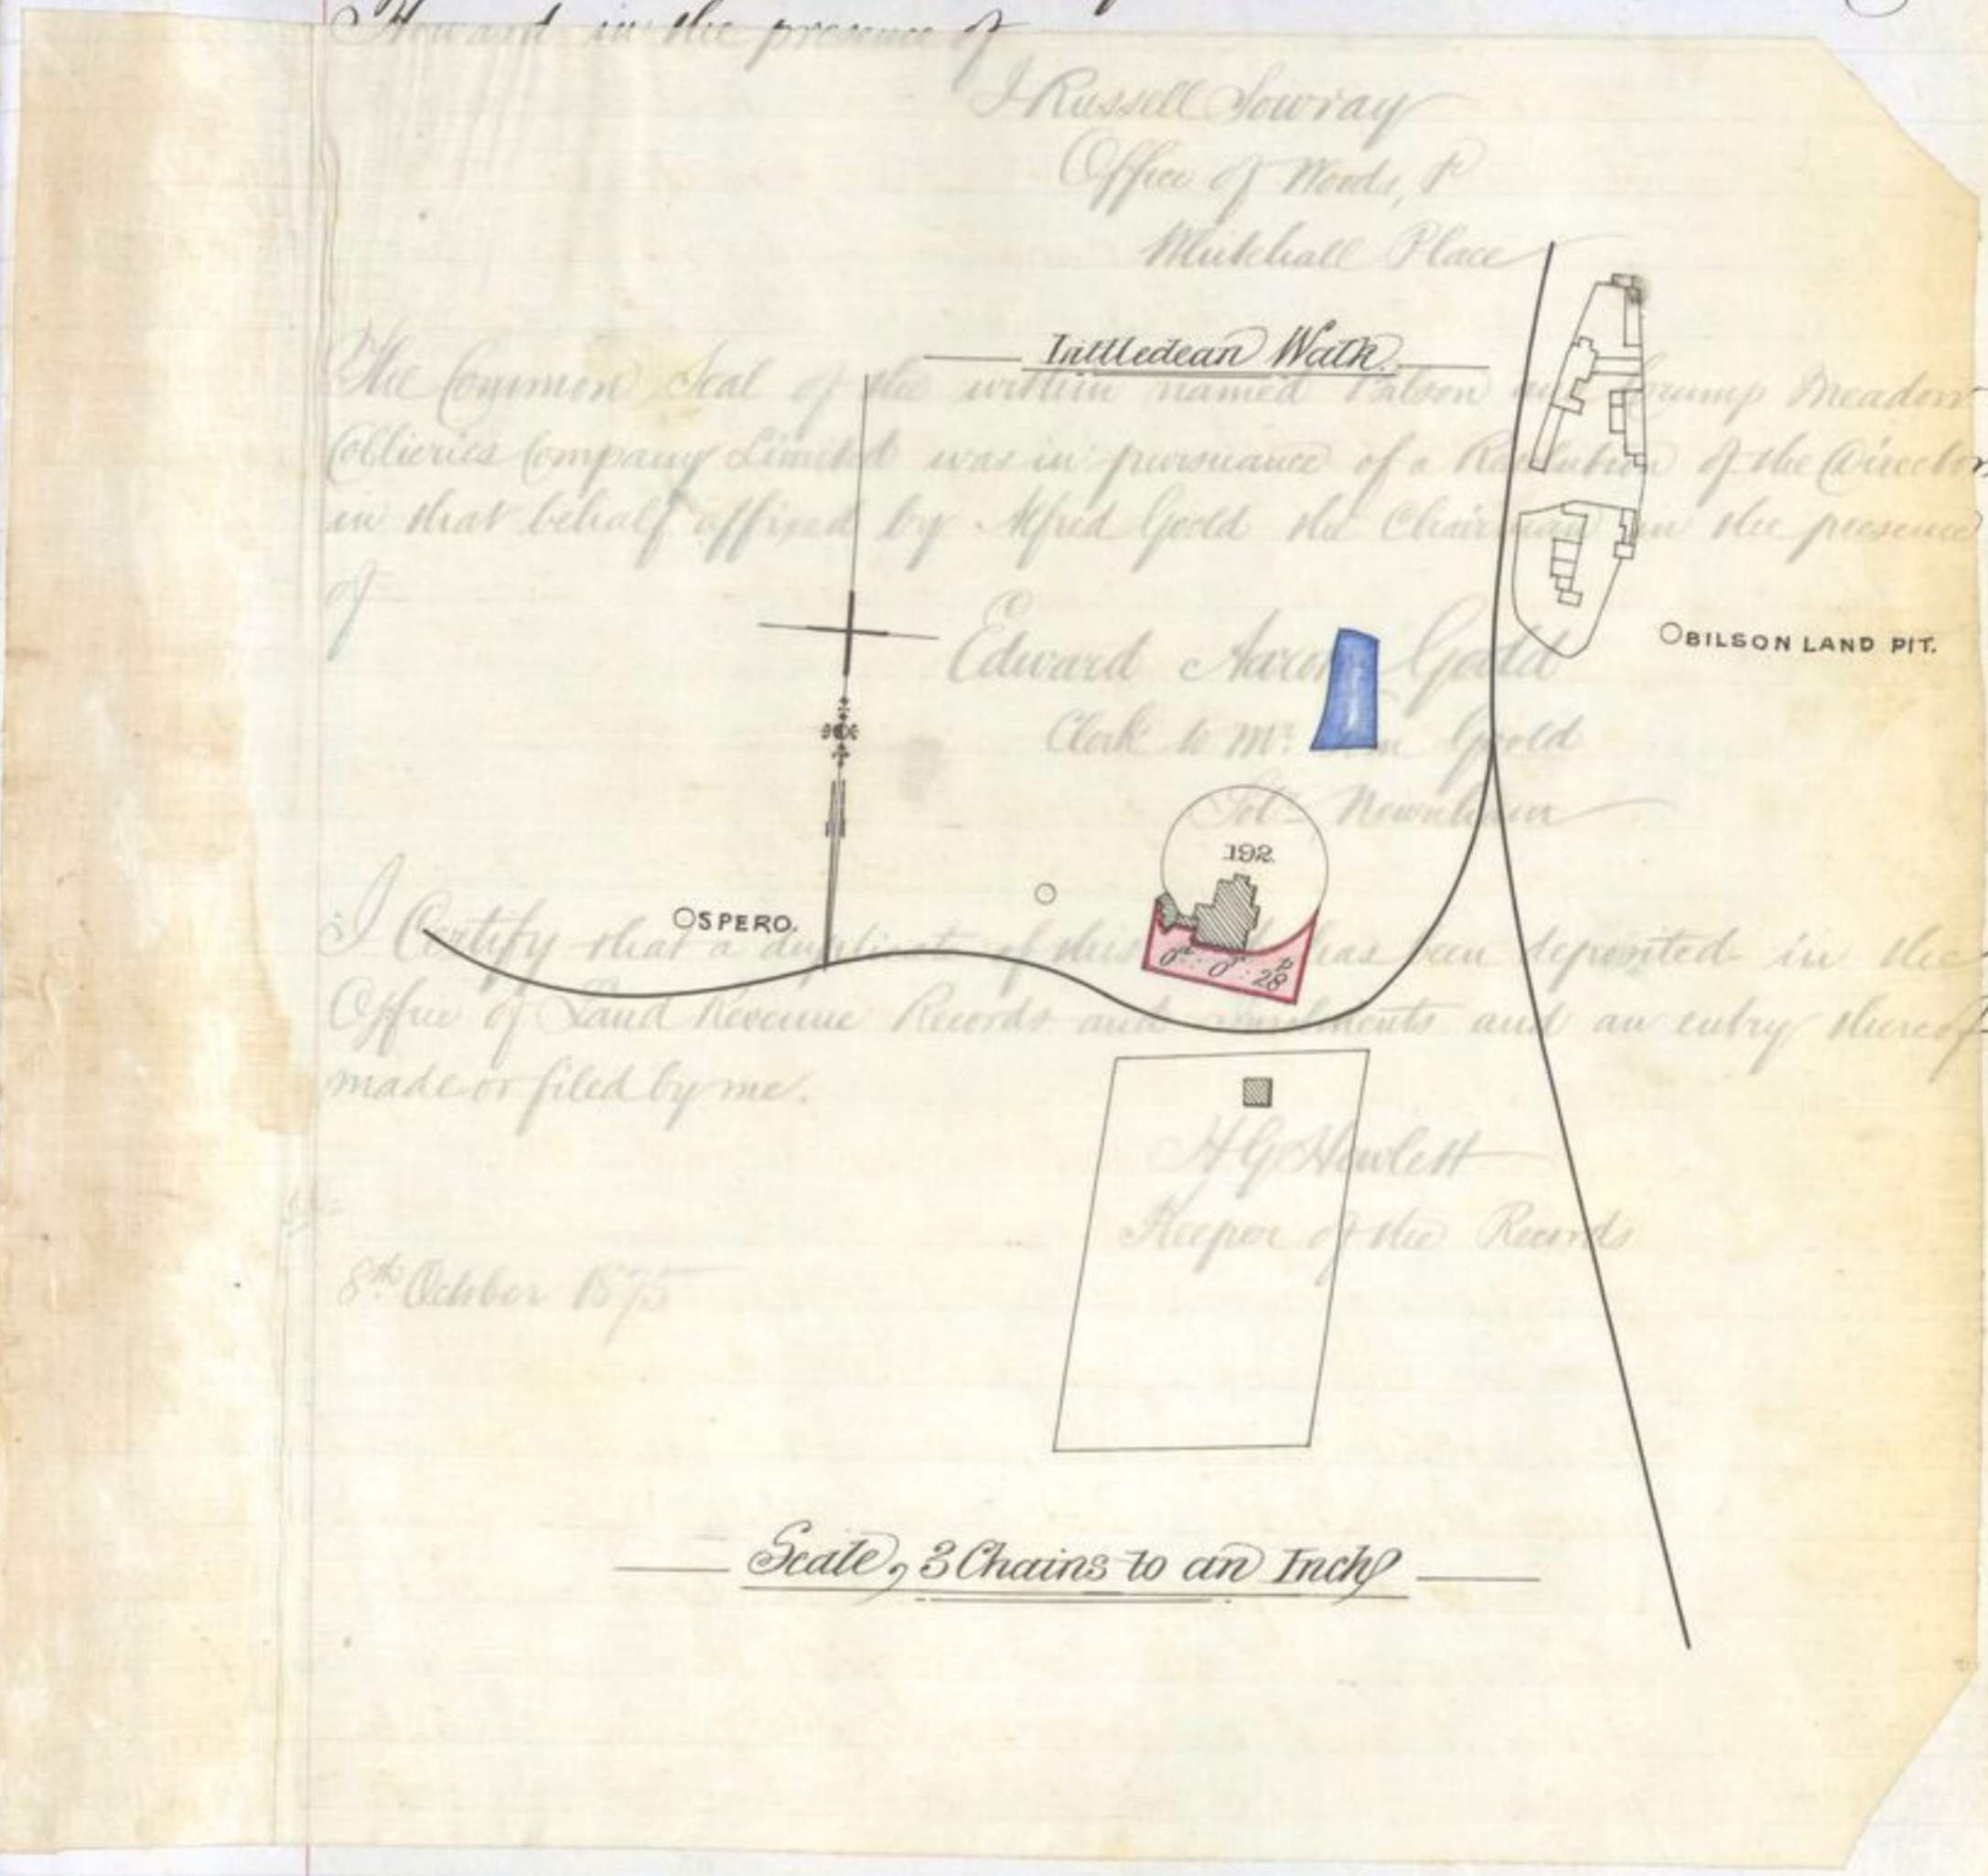 Howard in the presence of
J Russell Sowray
Office of Woods, &
Whitehall Place
Littledean Walk.
The Common Seal of the within named Bilson and Crump Meadow
Collieries Company Limited was in pursuance of a Resolution of the Directors
in that behalf affixed by Alfred Goold the Chairman in the presence
of
Edward Aaron Gadd
Clerk to Mr. Goold
Solr. Newnham
BILSON LAND PIT.
192.
SPERO.
0a. 0r. 28p
I Certify that a duplicate of this has been deposited in the
Office of Land Revenue Records and Inrolments and an entry thereof
made or filed by me.
H G Hewlett
Keeper of the Records
8th October 1875
Scale, 3 Chains to an Inch